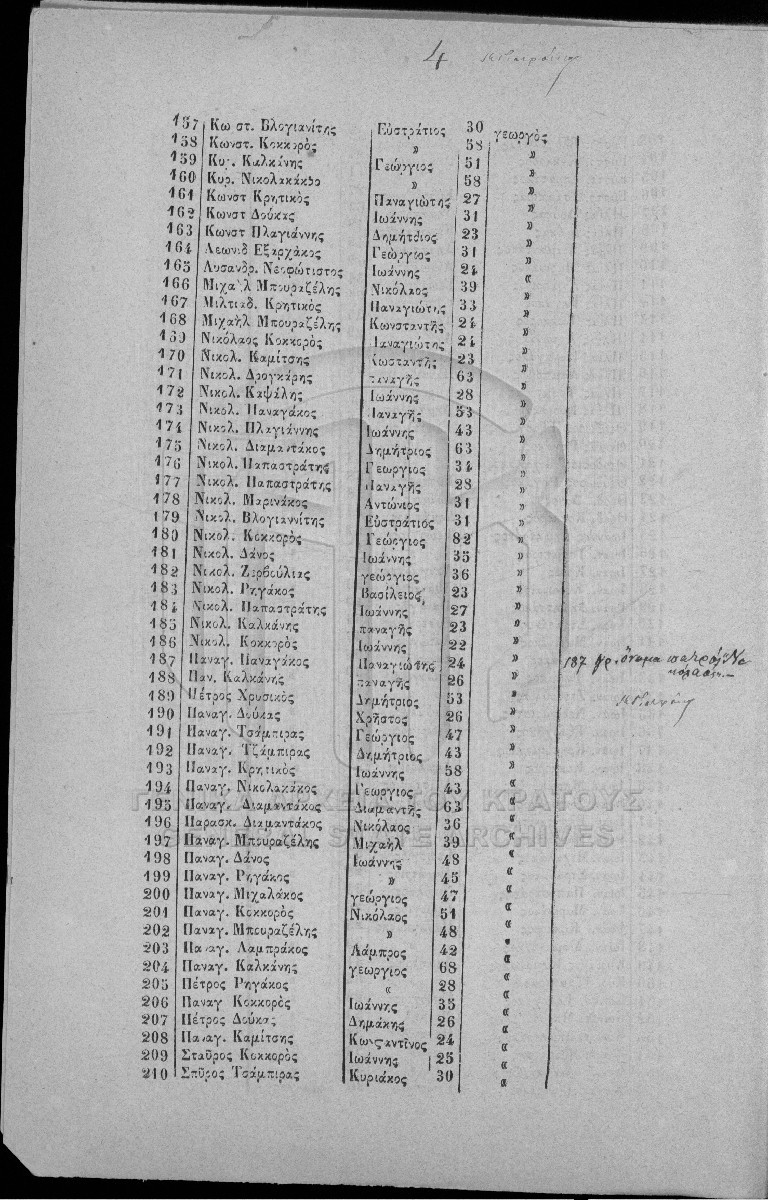 4
157 Κωστ. Βλογιανίτης Εὐστράτιος 30 γεωργὸς
158 Κωνστ. Κοκκορὸς » 58 »
159 Κυρ. Καλκάνης Γεώργιος 51 »
160 Κυρ. Νικολακάκο » 58 »
161 Κωνστ Κρητικὸς Παναγιώτης 27 »
162 Κωνστ Δούκας Ἰωάννης 31 »
163 Κωνστ Πλαγιάννης Δημήτριος 23 »
164 Λεωνιδ Εξαρχάκος Γεώργιος 31 »
165 Λυσανδρ. Νεοφώτιστος Ἰωάννης 24 «
166 Μιχαὴλ Μπουραζέλης Νικόλαος 39 »
167 Μιλτιαδ. Κρητικὸς Παναγιώτης 33 »
168 Μιχαὴλ Μπουραζέλης Κωνσταντῆς 24 »
169 Νικόλαος Κοκκορὸς Παναγιώτης 24 »
170 Νικολ. Καμίτσης Κωσταντῆς 23 »
171 Νικολ. Δρογκάρης παναγῆς 63 »
172 Νικολ. Καψάλης Ἰωάννης 28 »
173 Νικολ. Παναγάκος Παναγῆς 53 »
174 Νικολ. Πλαγιάννης Ἰωάννης 43 »
175 Νικολ. Διαμαντάκος Δημήτριος 63 »
176 Νικολ. Παπαστράτης Γεωργιος 34 »
177 Νικολ. Παπαστράτης Παναγῆς 28 »
178 Νικολ. Μαρινάκος Αντώνιος 31 »
179 Νικολ. Βλογιαννίτης Εὐστράτιος 31 »
180 Νικολ. Κοκκορὸς Γεώργιος 82 »
181 Νικολ. Δάνος Ἰωάννης 35 »
182 Νικολ. Ζερβούλιας γεώργιος 36 »
183 Νικολ. Ρηγάκος Βασίλειος 23 »
184 Νικολ. Παπαστράτης Ἰωάννης 27 »
185 Νικολ. Καλκάνης παναγῆς 23 »
186 Νικολ. Κοκκορὸς Ἰωάννης 22 »
187 Παναγ. Παναγάκος Παναγιώτης 24 » 187 γρ. ὄνομα πατρὸς Νικόλαον
188 Παν. Καλκάνης παναγῆς 26 »
189 Πέτρος Χρυσικὸς Δημήτριος 53 »
190 Παναγ. Δούκας Χρῆστος 26 »
191 Παναγ. Τσάμπιρας Γεώργιος 47 »
192 Παναγ. Τζάμπιρας Δημήτριος 43 »
193 Παναγ. Κρητικὸς Ἰωάννης 58 »
194 Παναγ. Νικολακάκος Γεωργιος 43 «
195 Παναγ. Διαμαντάκος Διαμαντῆς 63 «
196 Παρασκ. Διαμαντάκος Νικόλαος 36 «
197 Παναγ. Μπουραζέλης Μιχαὴλ 39 «
198 Παναγ. Δάνος Ἰωάννης 48 «
199 Παναγ. Ρηγάκος » 45 «
200 Παναγ. Μιχαλάκος γεώργιος 47 «
201 Παναγ. Κοκκορὸς Νικόλαος 51 «
202 Παναγ. Μπουραζέλης » 48 «
203 Παναγ. Λαμπράκος Λάμπρος 42 «
204 Παναγ. Καλκάνης γεωργιος 68 «
205 Πέτρος Ρηγάκος « 28 «
206 Παναγ Κοκκορὸς Ἰωάννης 35 «
207 Πέτρος Δούκας Δημάκης 26 «
208 Παναγ. Καμίτσης Κωνσταντῖνος 24 «
209 Σταῦρος Κοκκορὸς Ἰωάννης 25 «
210 Σπῦρος Τσάμπιρας Κυριάκος 30 «
ΓΕΝΙΚΑ ΑΡΧΕΙΑ ΤΟΥ ΚΡΑΤΟΥΣ
GENERAL STATE ARCHIVES